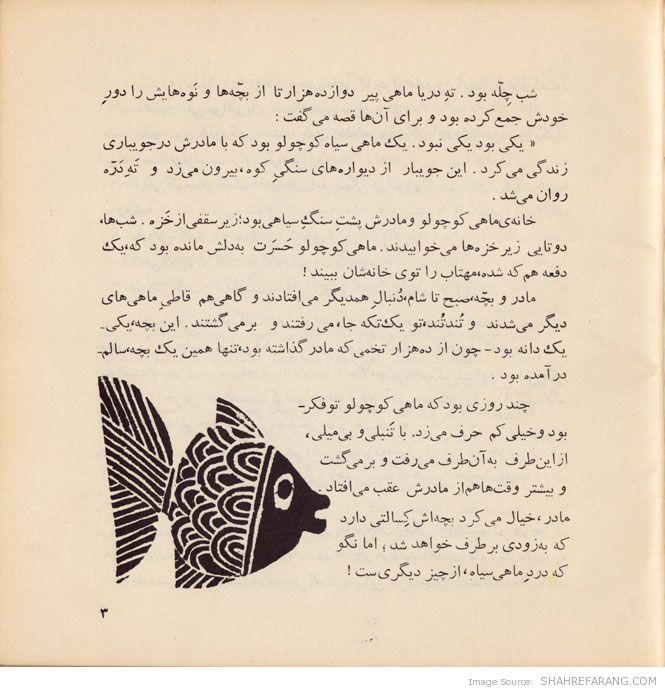 شبِ چِلّه بود . تهِ دریا ماهی پیر دوازده‌هزار تا از بچّه‌ها و نَوه‌هایش را دورِ
خودش جمع کرده بود و برای آن‌ها قصه می‌گفت :
« یکی بود یکی نبود . یک ماهی سیاه کوچولو بود که با مادرش در جویباری
زندگی می‌کرد . این جویبار از دیواره‌های سنگیِ کوه، بیرون می‌زد و تَهِ دَرّه
روان می‌شد .
خانه‌ی ماهی کوچولو و مادرش پشتِ سنگِ سیاهی بود؛ زیر سقفی از خَزه . شب‌ها،
دوتایی زیر خزه‌ها می‌خوابیدند . ماهی کوچولو حَسرَت به‌دلش مانده بود که، یک
دفعه هم که شده، مهتاب را توی خانه‌شان ببیند !
مادر و بچّه، صبح تا شام، دُنبالِ همدیگر می‌افتادند و گاهی هم قاطیِ ماهی‌های
دیگر می‌شدند و تُندتُند، تو یک تکه جا، می رفتند و برمی‌گشتند . این بچه، یکی-
یک دانه بود - چون از ده‌هزار تخمی که مادر گذاشته بود، تنها همین یک بچه، سالم-
درآمده بود .
چند روزی بود که ماهی کوچولو تو فکر-
بود و خیلی کم حرف می‌زد. با تَنبلی و بی‌میلی،
از این طرف به آن طرف می‌رفت و برمی‌گشت
و بیشتر وقت‌ها هم از مادرش عقب می‌افتاد .
مادر ، خیال می‌کرد بچه‌اش کِسالتی دارد
که به‌زودی برطرف خواهد شد ؛ اما نگو
که دردِ ماهی سیاه، از چیز دیگری‌ست !
۳
Image Source: SHAHREFARANG.COM